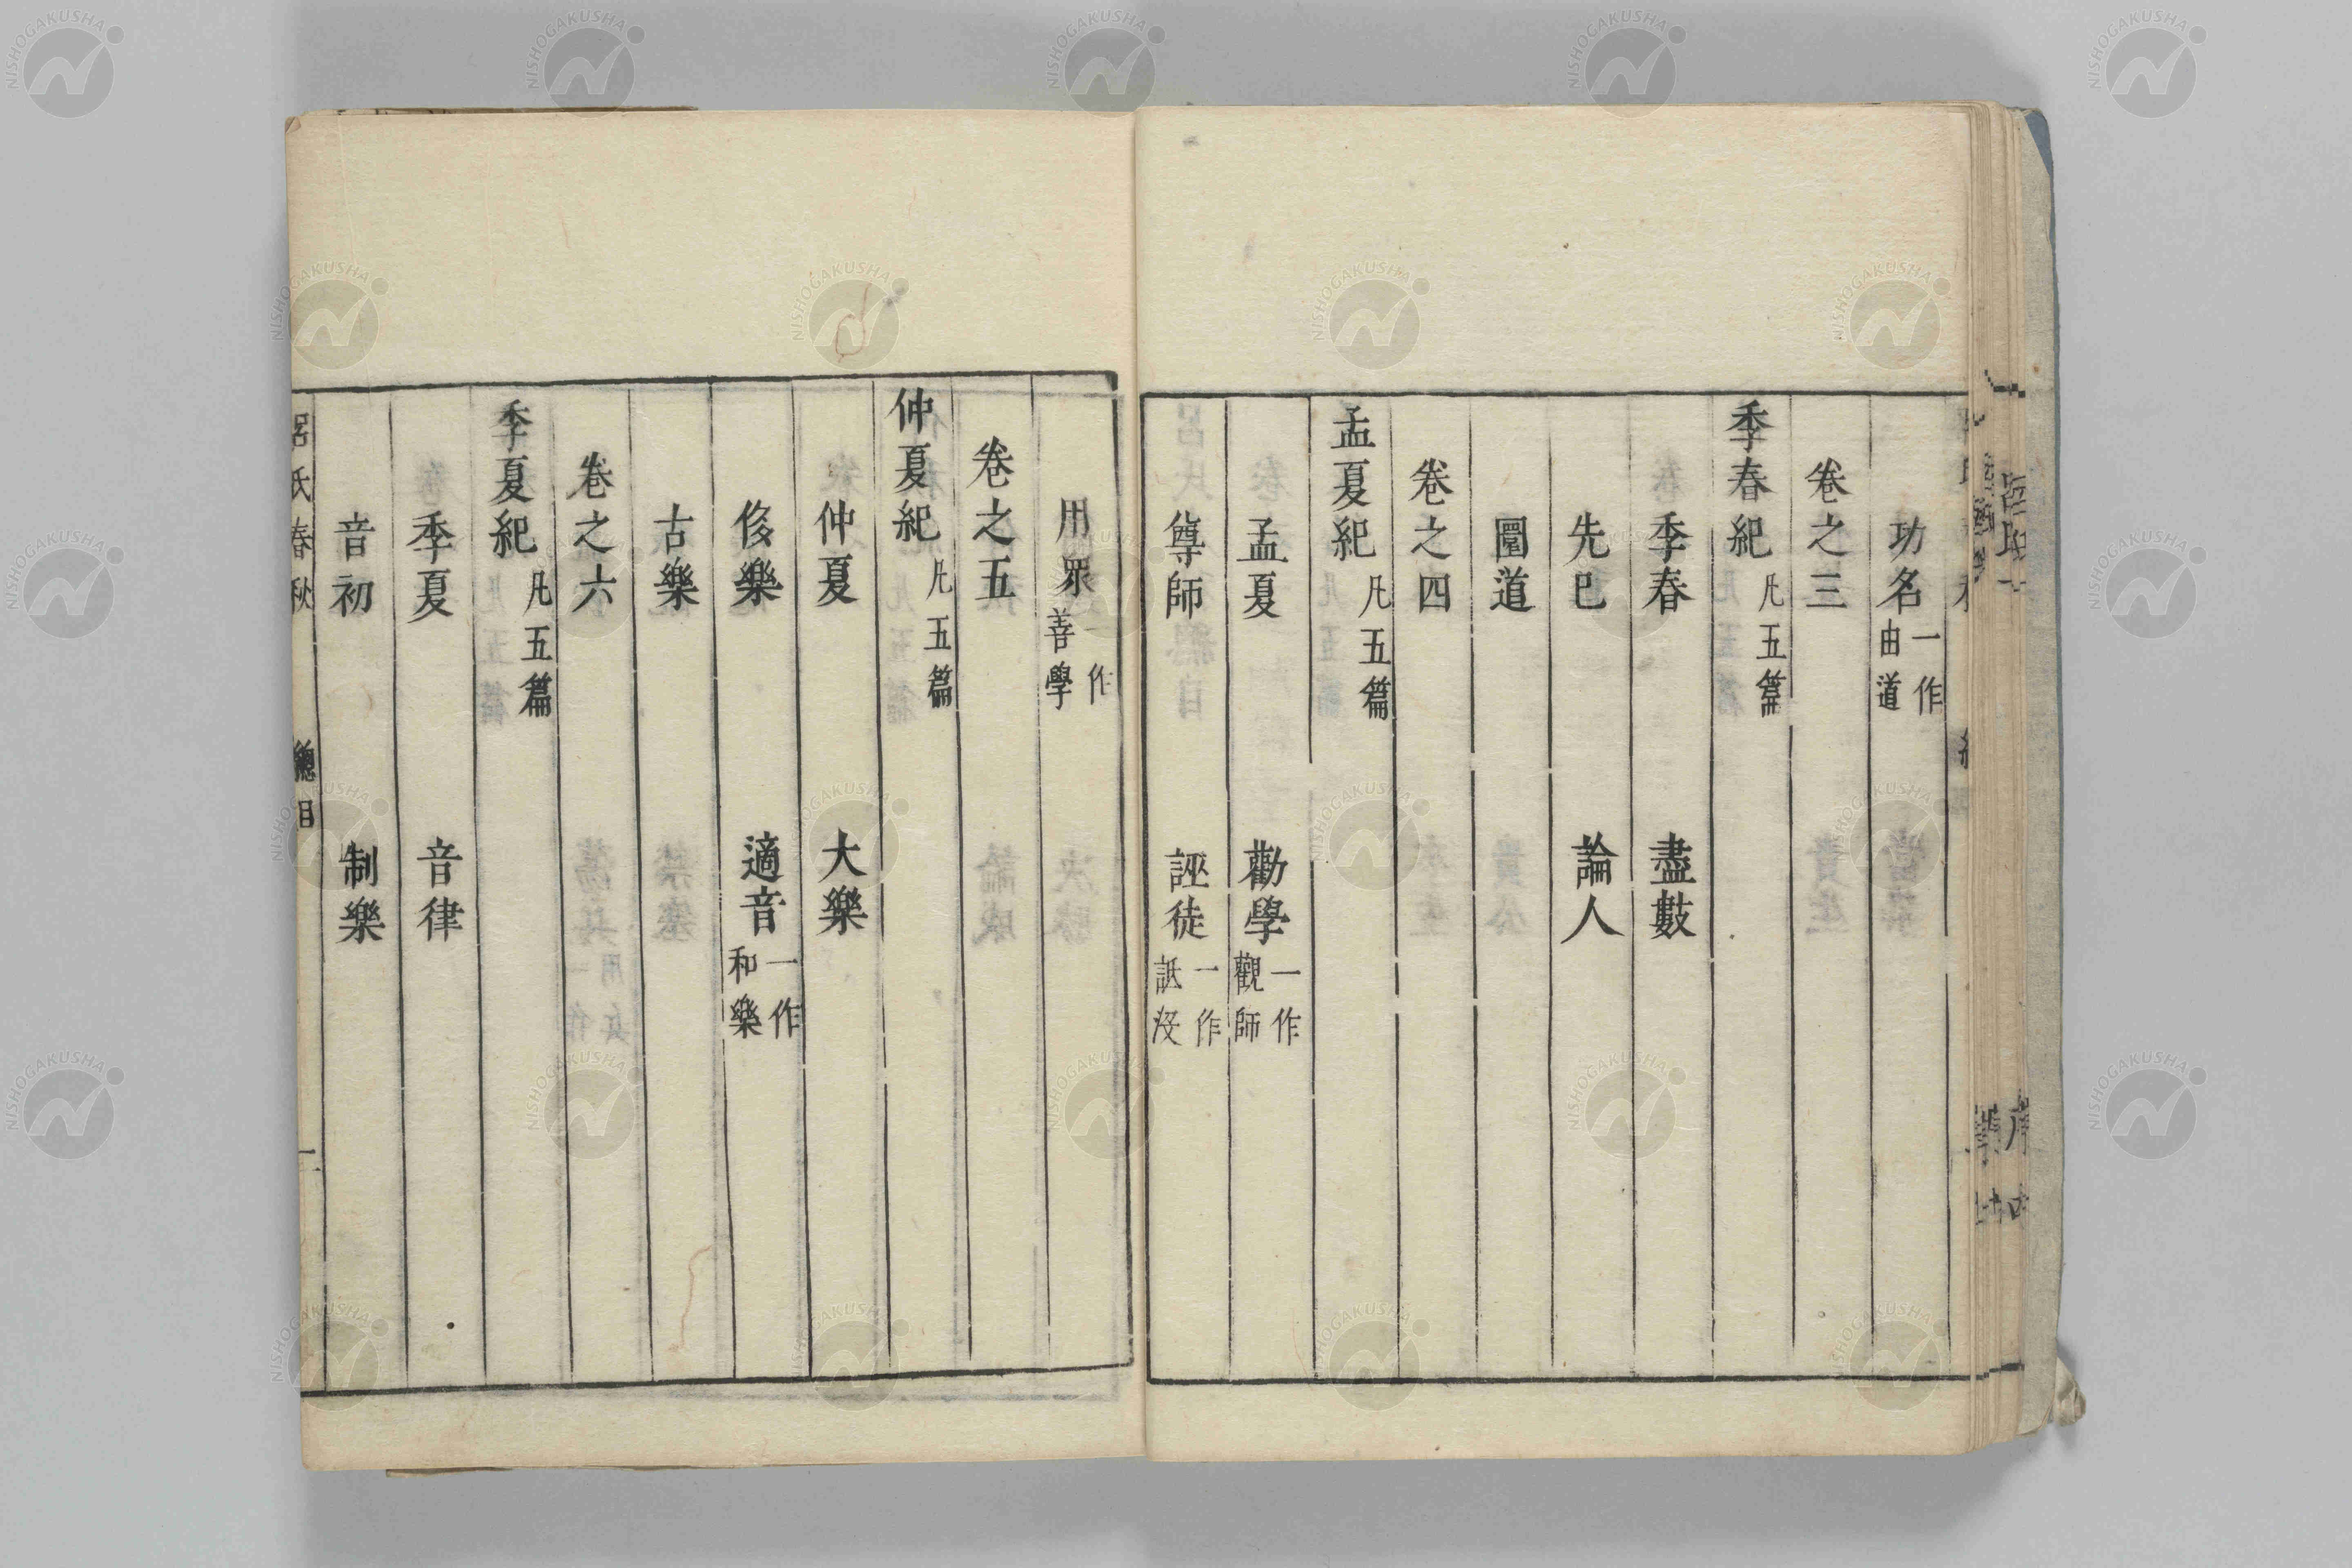 功名一作由道
卷之三
季春紀凡五篇
季春　盡數
先己　論人
圜道
卷之四
孟夏紀凡五篇
孟夏　勸學一作觀師
尊師　誣徒一作詆役
用眾一作善學
卷之五
仲夏紀凡五篇
仲夏　大樂
侈樂　適音一作和樂
古樂
卷之六
季夏紀凡五篇
季夏　音律
音初　制樂
呂氏春秋　總目　二
NISHOGAKUSHA